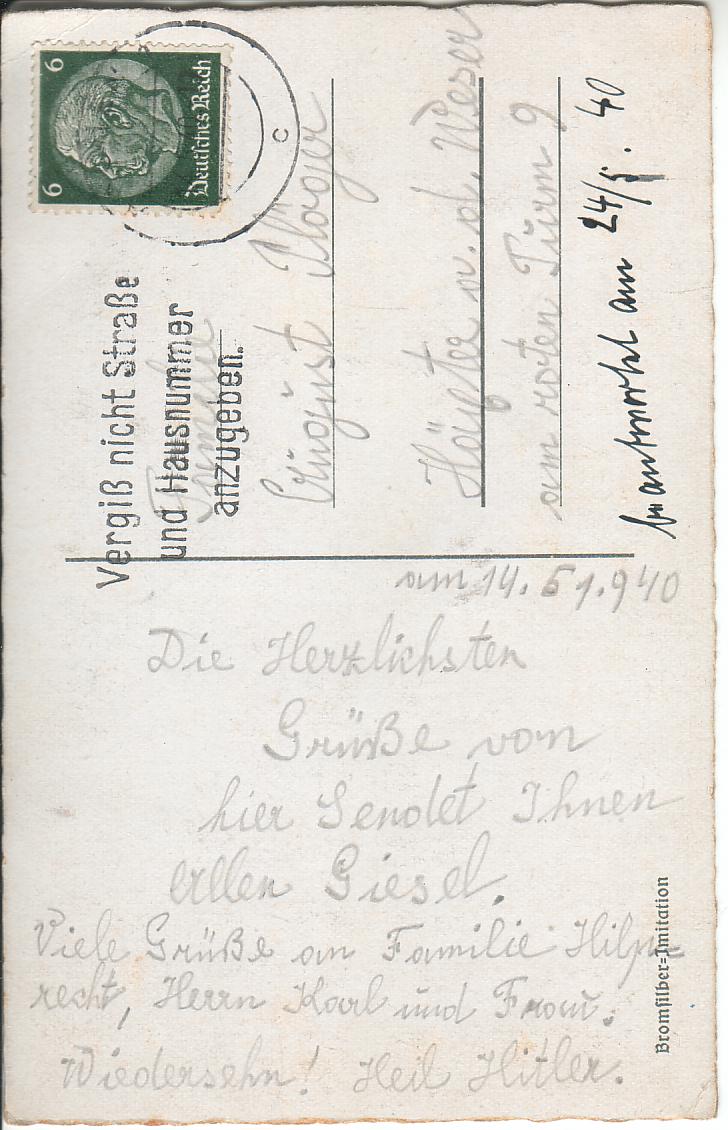 6 6
Deutsches Reich
c
Vergiß nicht Straße
und Hausnummer
anzugeben.
Familie
August
Höxter a. d. Weser
am roten Turm 9
beantwortet am 24/5. 40
am 14. 5 1.940
Die Herzlichsten
Grüße von
hier Sendet Ihnen
allen Giesel.
Viele Grüße an Familie Hilp-
recht, Herrn Karl und Frau.
Wiedersehn! Heil Hitler.
Bromsilber-Imitation